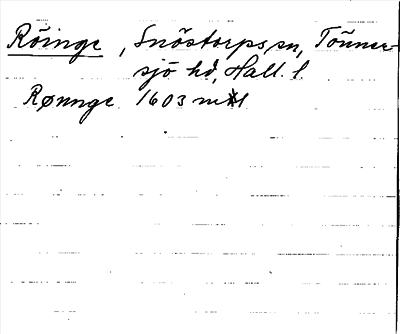 Röinge, Snöstorps sn, Tönner-
sjö hd, Hall. l.
Rønnge 1603 mtl